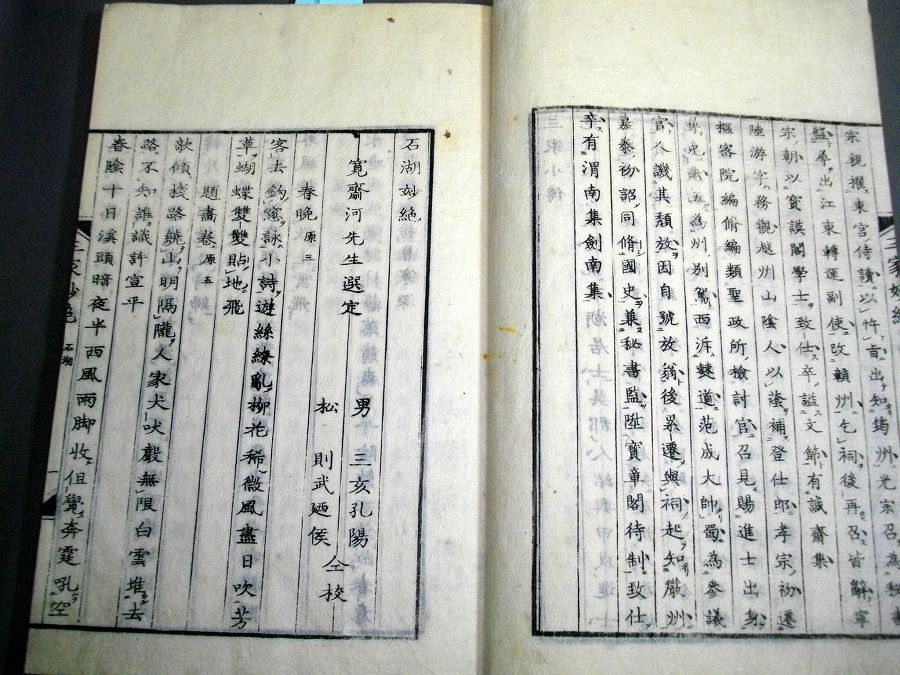 宗親擢東宮侍讀以忤旨出知筠州光宗召為秘書
監尋出江東轉運副使改贛州乞祠後再召皆辭寧
宗朝以寶謨閣學士致仕卒謚文節有誠齋集
陸游字務觀越州山陰人以蔭補登仕郎孝宗初遷
樞密院編脩編類聖政所檢討官召見賜進士出身
免五為州別駕西泝僰道范成大帥蜀為參議
官人譏其頹放因自號放翁後累遷與祠起知嚴州
嘉泰初詔同脩國史兼秘書監陞寶章閣待制致仕
卒有渭南集劍南集
三家妙絕
石湖妙絕
寬齋河先生選定 男 三亥孔陽
松 則武廼侯 仝校
春晚 原三
客去鈎窗詠小詩遊絲繚亂柳花稀微風盡日吹芳
草蝴蝶雙雙貼地飛
題畫卷 原五
欹傾棧路繞山明隔隴人家犬吠聲無限白雲堆去
路不知誰識許宣平
春陰十日溪頭暗夜半西風雨脚收但覺奔霆吼空
三家妙絕 石湖 一